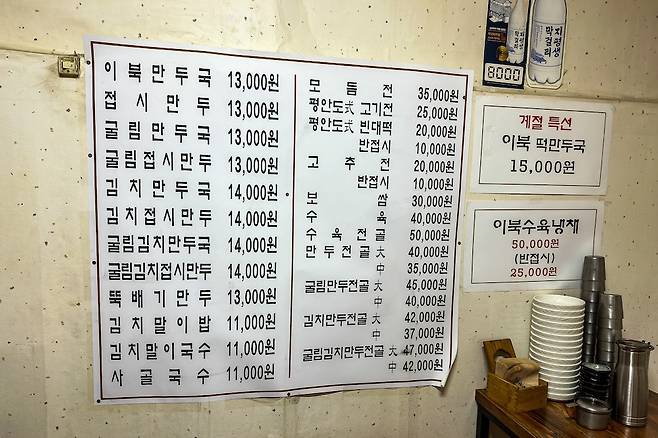 이북만두국 13,000원
접시만두 13,000원
굴림만두국 13,000원
굴림접시만두 13,000원
김치만두국 14,000원
김치접시만두 14,000원
굴림김치만두국 14,000원
굴림김치접시만두 14,000원
뚝배기만두 13,000원
김치말이밥 11,000원
김치말이국수 11,000원
사골국수 11,000원
모듬전 35,000원
평안도式 고기전 25,000원
평안도式 빈대떡 20,000원
반접시 10,000원
고추전 20,000원
반접시 10,000원
보쌈 30,000원
수육 40,000원
수육전골 50,000원
만두전골 大 40,000원
中 35,000원
굴림만두전골 大 45,000원
中 40,000원
김치만두전골 大 42,000원
中 37,000원
굴림김치만두전골 大 47,000원
中 42,000원
지평생
막걸리
8000
계절 특선
이북 떡만두국
15,000원
이북수육냉채
50,000원
(반접시)
25,000원